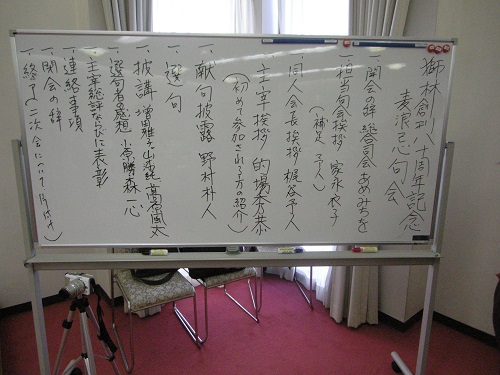 獅林創刊八十周年記念
麦浪忌句会
一、開会の辞 総合司会 あめみちを
一、担当句会挨拶 家永衣子
(補足 予人)
一、同人会長挨拶 梶谷予人
一、主宰挨拶 的場秀恭
(初めて参加される方の紹介)
一、献句披露 野村朴人
一、選句
一、披講 増田雅子、山添純、高層風太
一、選句者感想 小奈勝、森一心
一、主宰総評ならびに表彰
一、連絡事項
一、閉会の辞
一、終了(二次会について